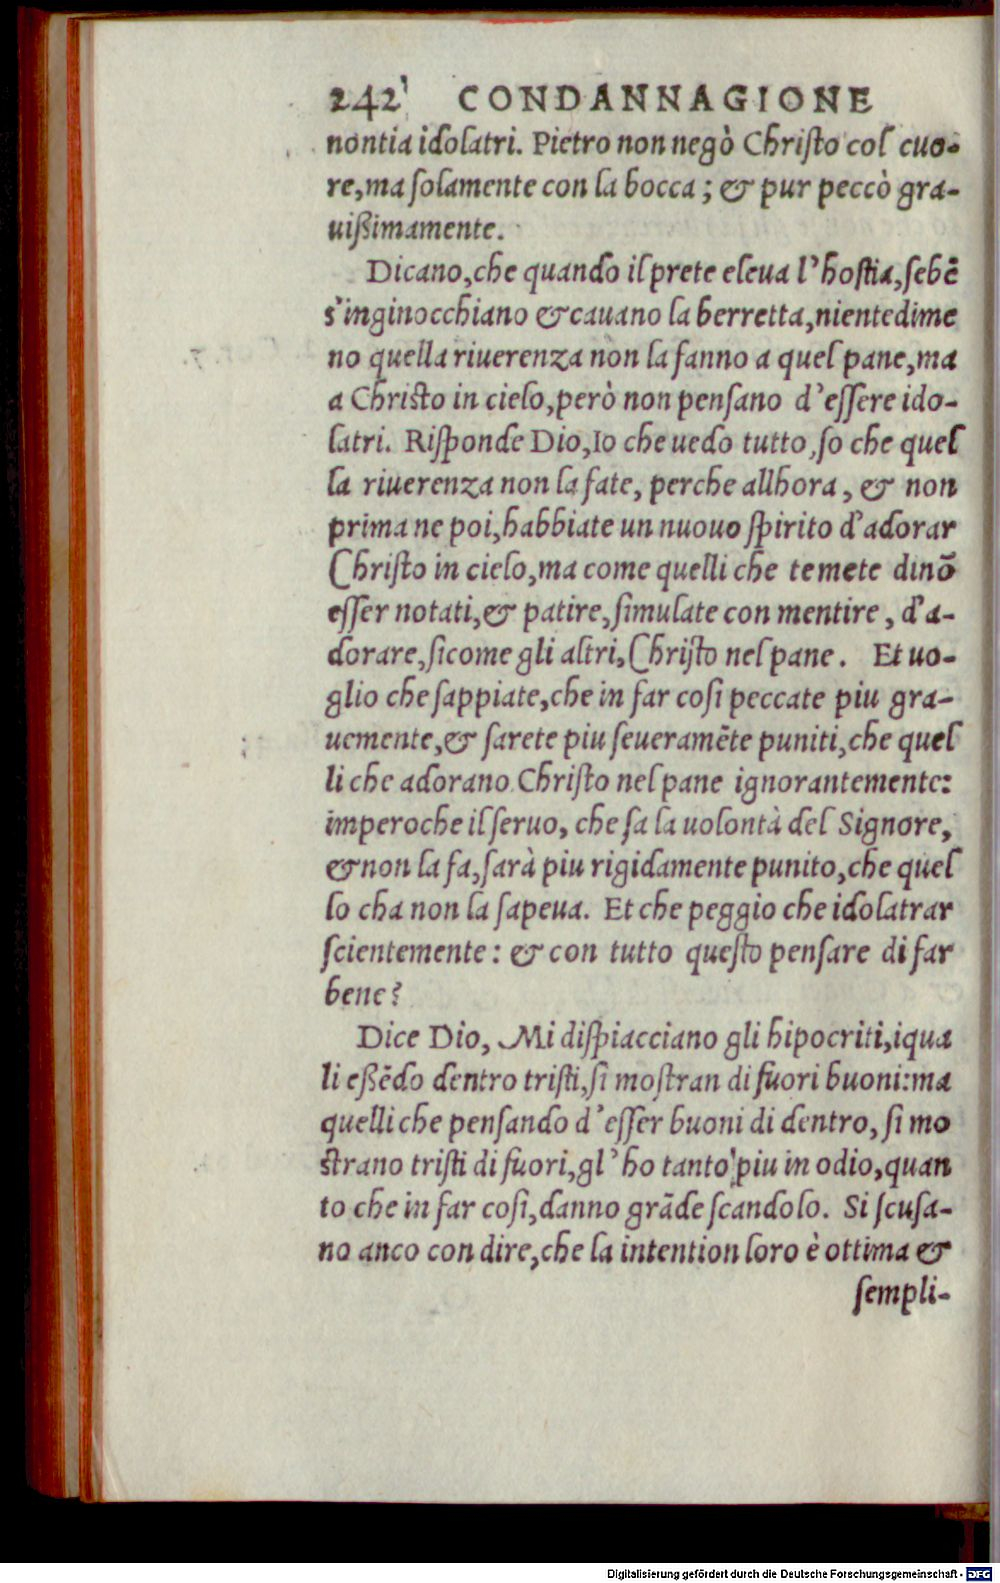 242 CONDANNAGIONE
nontia idolatri. Pietro non negò Chriſto col cuo-
re, ma ſolamente con la bocca; & pur peccò gra-
uißimamente.
Dicano, che quando il prete eleua l'hoſtia, ſebē
s'inginocchiano & cauano la berretta, nientedime
no quella riuerenza non la fanno a quel pane, ma
a Chriſto in cielo, però non penſano d'eſſere ido-
latri. Riſponde Dio, Io che uedo tutto, ſo che quel
la riuerenza non la fate, perche allhora, & non
prima ne poi, habbiate un nuouo ſpirito d'adorar
Chriſto in cielo, ma come quelli che temete dinō
eſſer notati, & patire, ſimulate con mentire, d'a-
dorare, ſicome gli altri, Chriſto nel pane. Et uo-
glio che ſappiate, che in far coſi peccate piu gra-
uemente, & ſarete piu ſeueramēte puniti, che quel
li che adorano Chriſto nel pane ignorantemente:
imperoche il ſeruo, che ſa la uolontà del Signore,
& non la fa, ſarà piu rigidamente punito, che quel
lo cha non la ſapeua. Et che peggio che idolatrar
ſcientemente: & con tutto queſto penſare di far
bene?
Dice Dio, Mi diſpiacciano gli hipocriti, iqua
li eßēdo dentro triſti, ſi moſtran di fuori buoni: ma
quelli che penſando d'eſſer buoni di dentro, ſi mo
ſtrano triſti di fuori, gl'ho tanto piu in odio, quan
to che in far coſi, danno grāde ſcandolo. Si ſcuſa-
no anco con dire, che la intention loro è ottima &
ſempli-
Digitalisierung gefördert durch die Deutsche Forschungsgemeinschaft - DFG